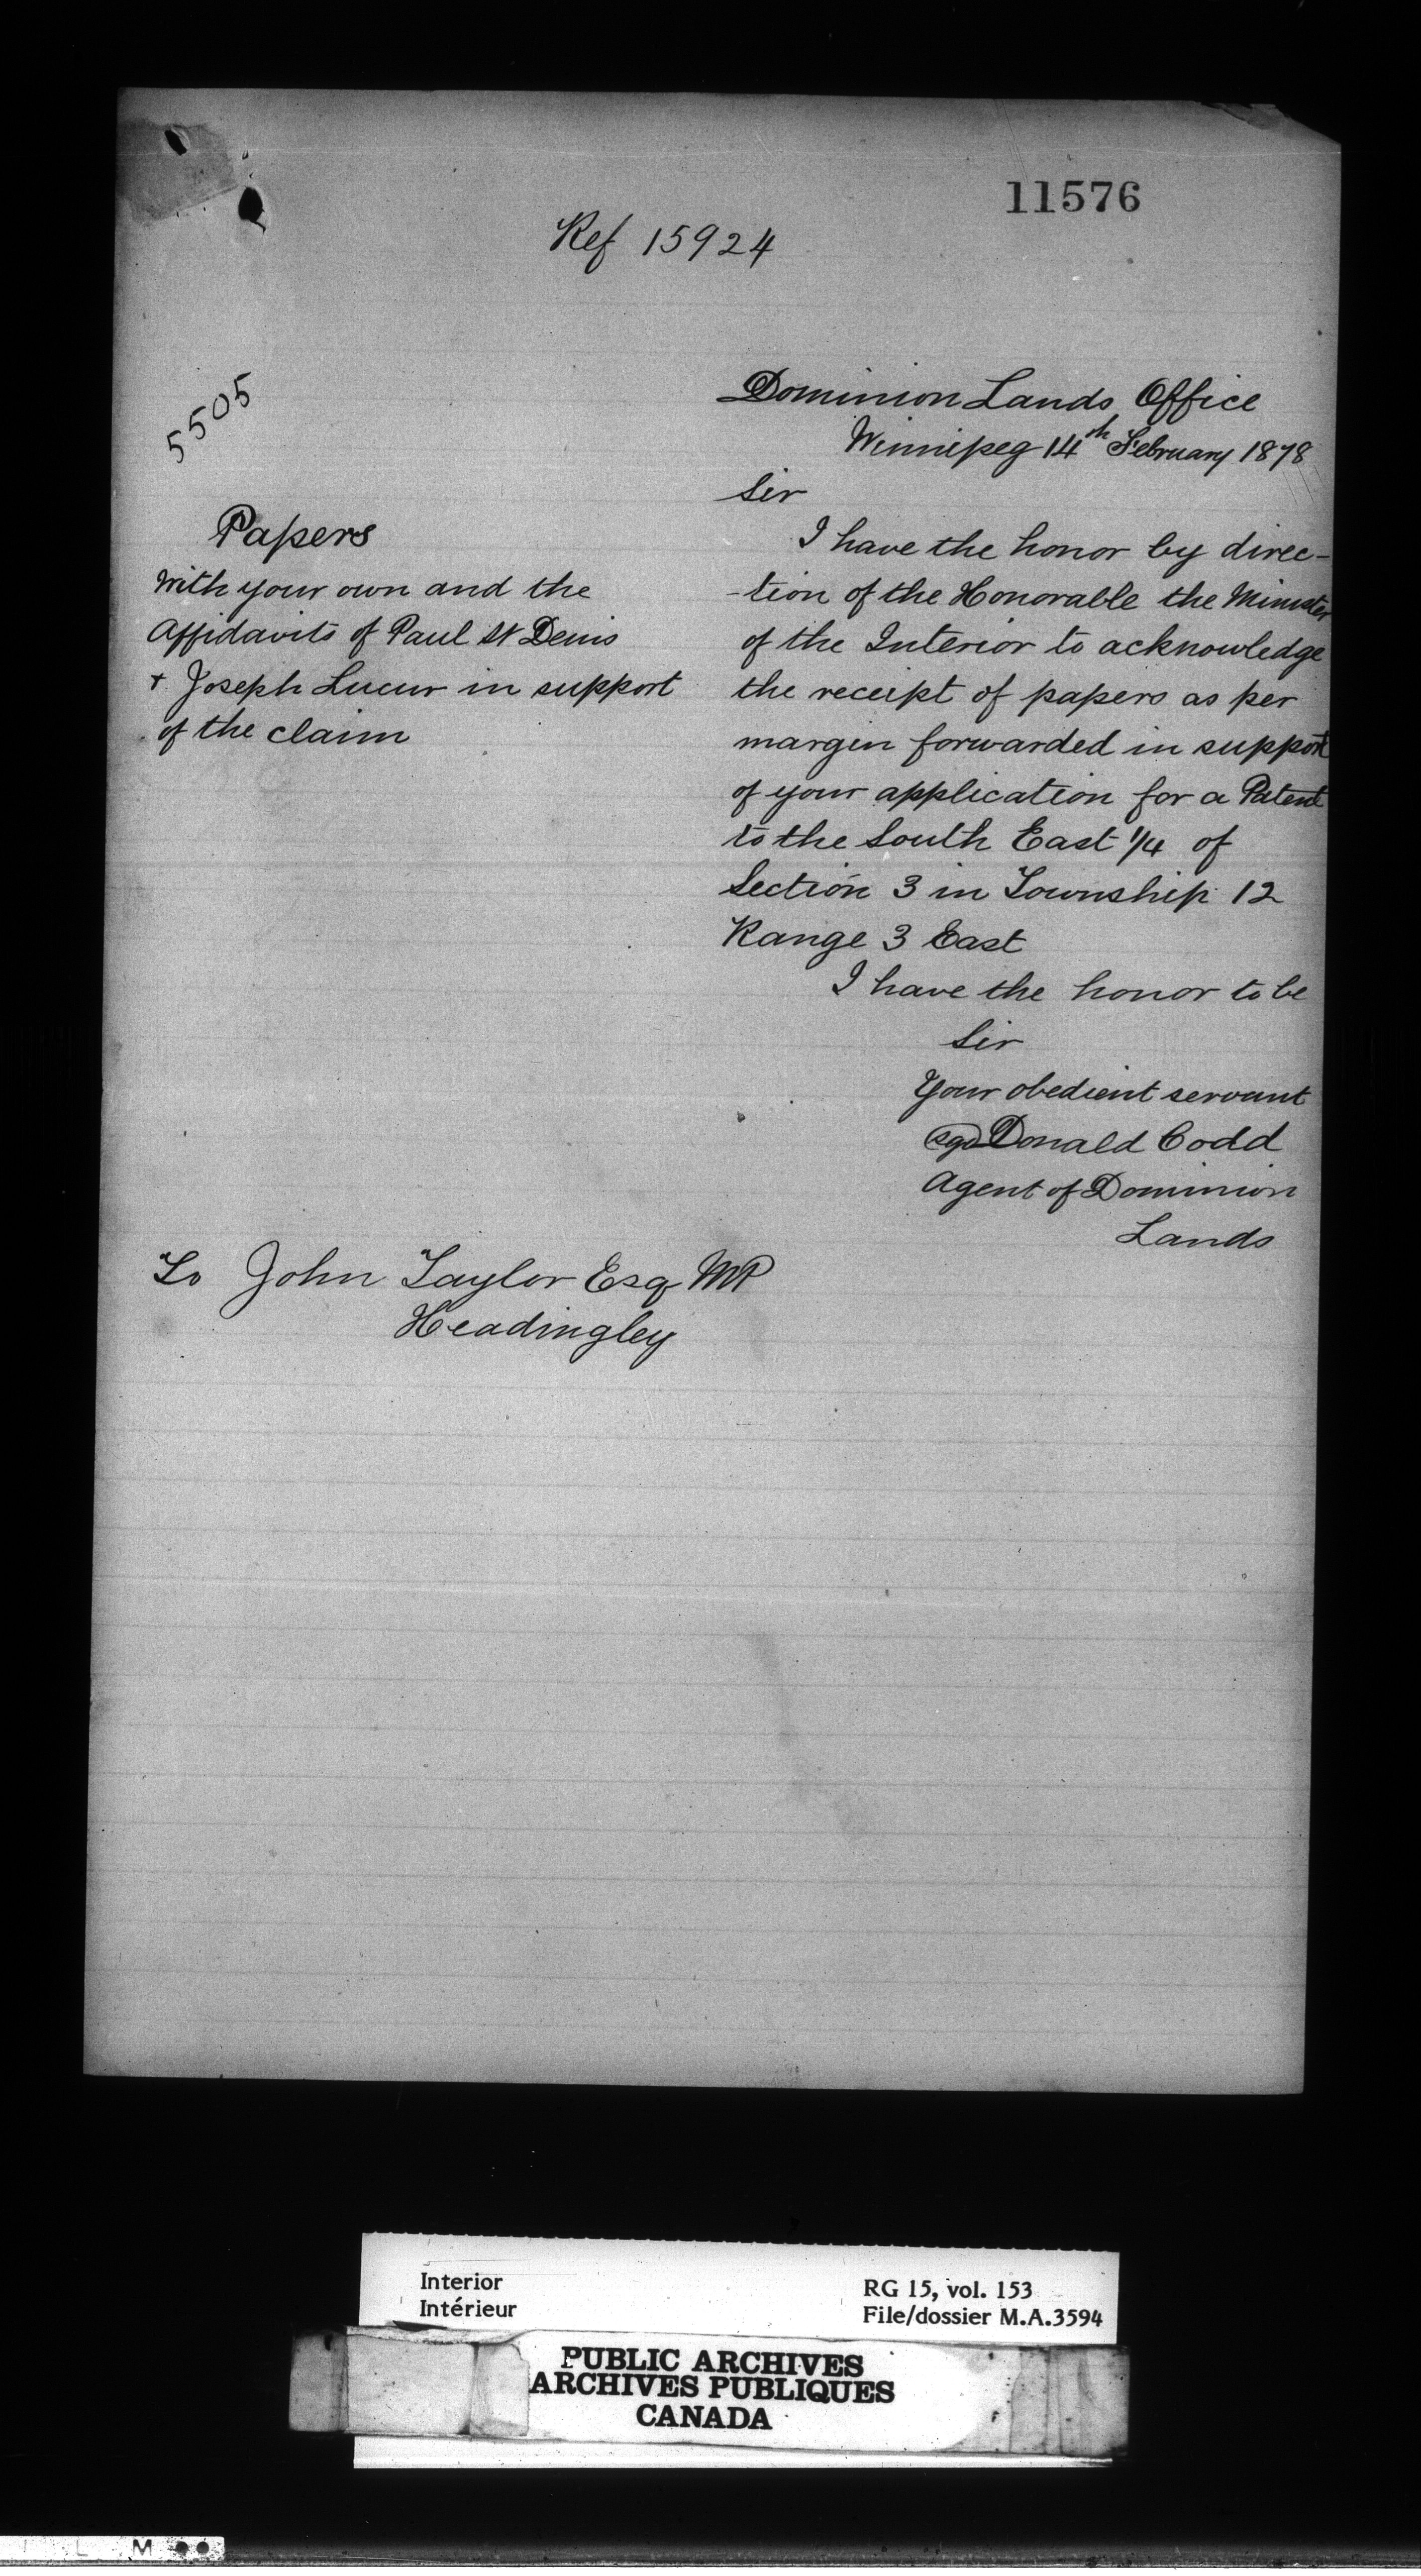 11576
Ref 15924
5505
Dominion Lands Office
Winnipeg 14th February 1878
Sir
I have the honor by direc-
-tion of the Honorable the Minister
of the Interior to acknowledge
the receipt of papers as per
margin forwarded in support
of your application for a Patent
to the South East 1/4 of
Section 3 in Township 12
Range 3 East
I have the honor to be
Sir
Your obedient servant
sgd Donald Codd
Agent of Dominion
Lands
Papers
with your own and the
Affidavits of Paul St Denis
+ Joseph Lucur in support
of the claim
To John Taylor Esq MP
Headingley
Interior
Intérieur
RG 15, vol. 153
File/dossier M.A.3594
PUBLIC ARCHIVES
ARCHIVES PUBLIQUES
CANADA
L M